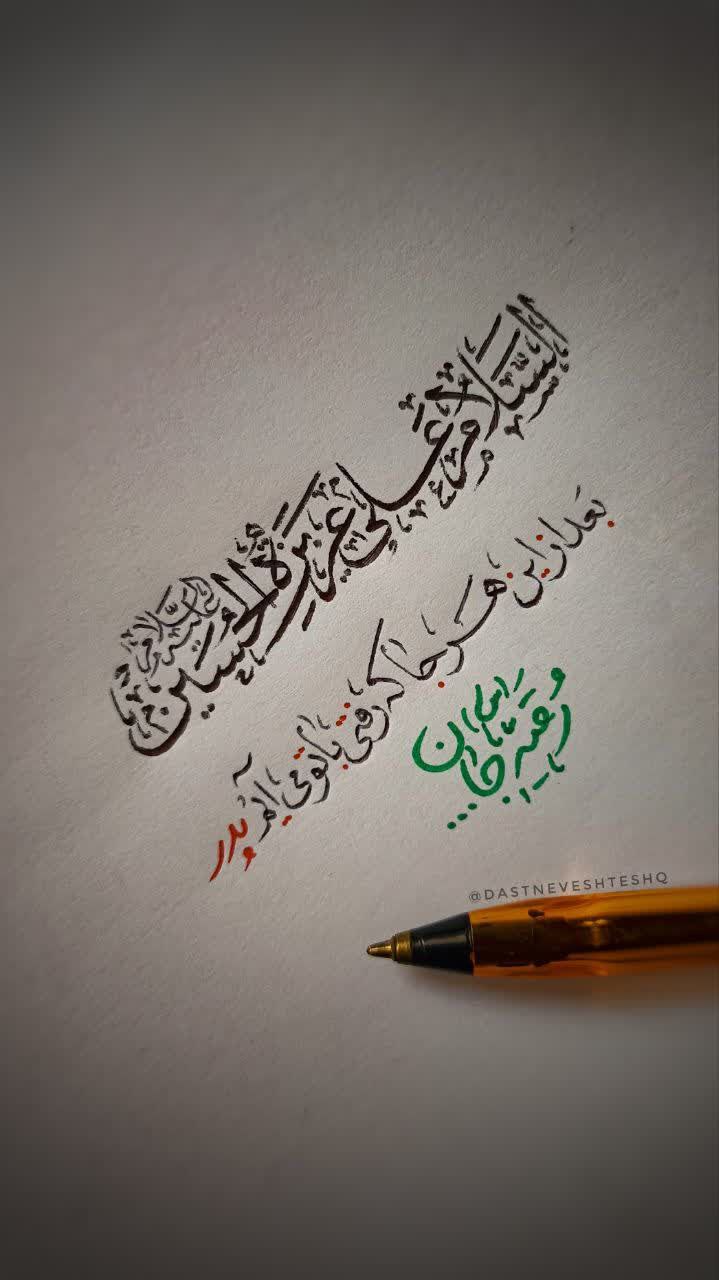 السَّلامُ عَلی عَزیزَةِ الحُسَین علیه السلام
بعد از این هر جا که رفتی با تو می آیم پدر
رقیه جان ...
@DASTNEVESHTESHQ